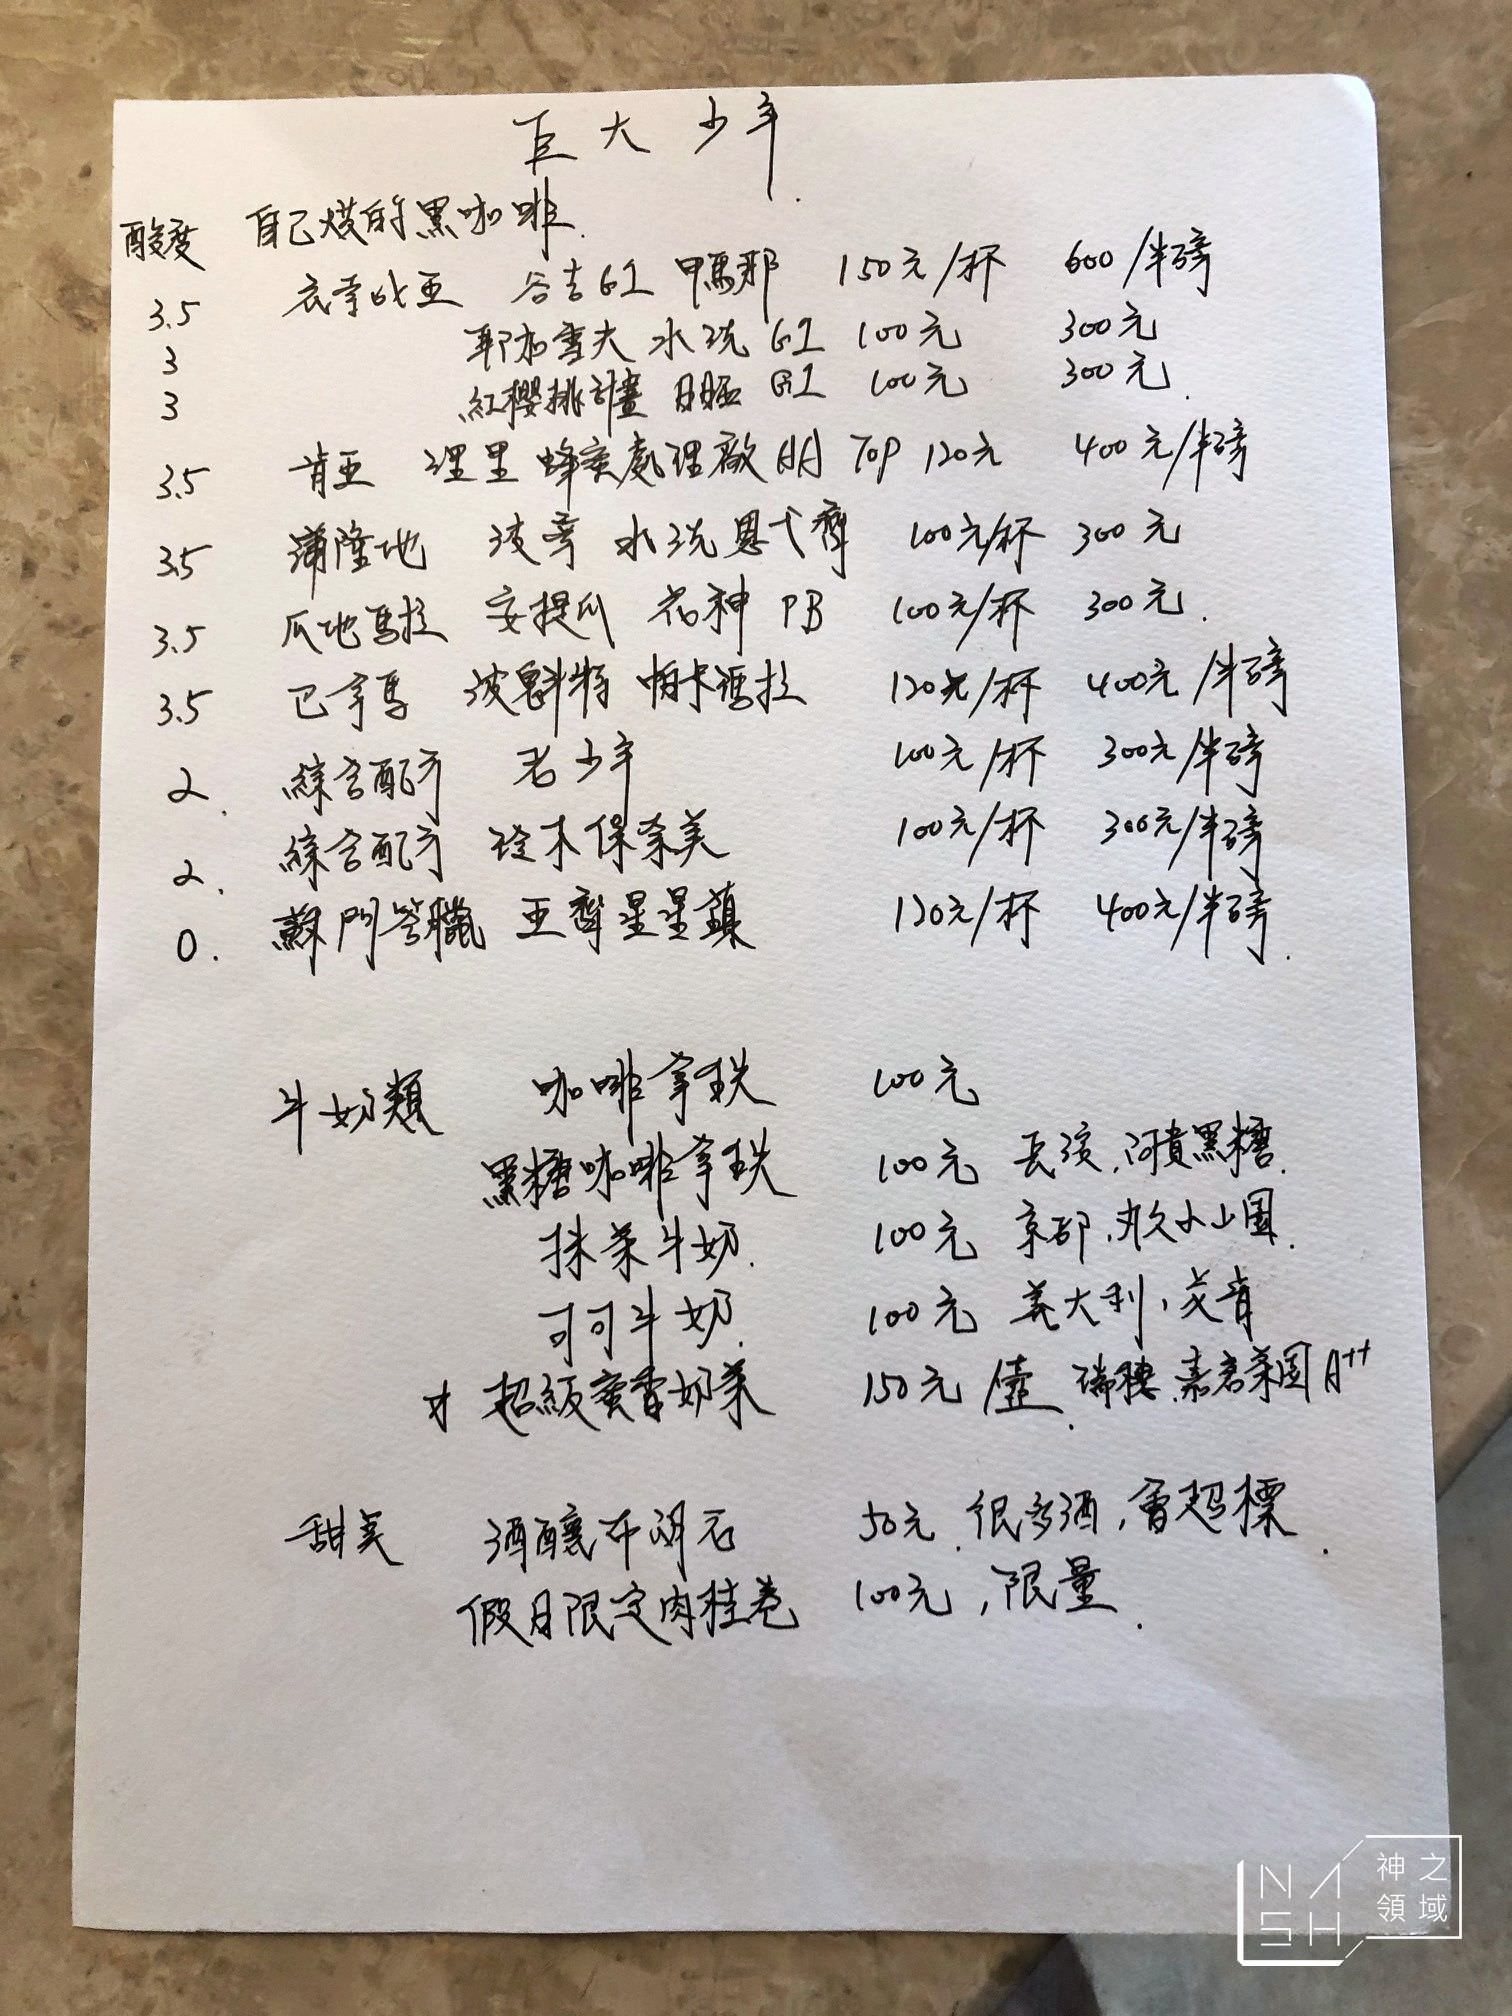 巨大少年
酸度 自己焙的黑咖啡
3.5 衣索比亞 谷吉G1 鴨那 150元/杯 600/半磅
3 耶加雪夫 水洗 G1 100元 300元
3 紅櫻桃計畫 日曬 G1 100元 300元
3.5 肯亞 涅里 蜂蜜處理廠 AA TOP 120元 400元/半磅
3.5 蒲隆地 波旁 水洗 恩戈齊 100元/杯 300元
3.5 瓜地馬拉 安提瓜 花神 PB 100元/杯 300元
3.5 巴拿馬 波魁特 帕卡瑪拉 120元/杯 400元/半磅
2. 綜合配方 老少年 100元/杯 300元/半磅
2. 綜合配方 鈴木保奈美 100元/杯 300元/半磅
0. 蘇門答臘 亞齊星星鎮 120元/杯 400元/半磅
牛奶類 咖啡拿鐵 100元
黑糖咖啡拿鐵 100元 長濱,阿貴黑糖.
抹茶牛奶. 100元 京都,丸久小山園.
可可牛奶. 100元 義大利,艾肯
超級蜜香奶茶 150元/壺. 瑞穗 嘉茗茶園A++
甜點 酒釀布朗石 50元.很多酒,會超標.
假日限定肉桂卷 100元,限量.
NASH
神之
領域